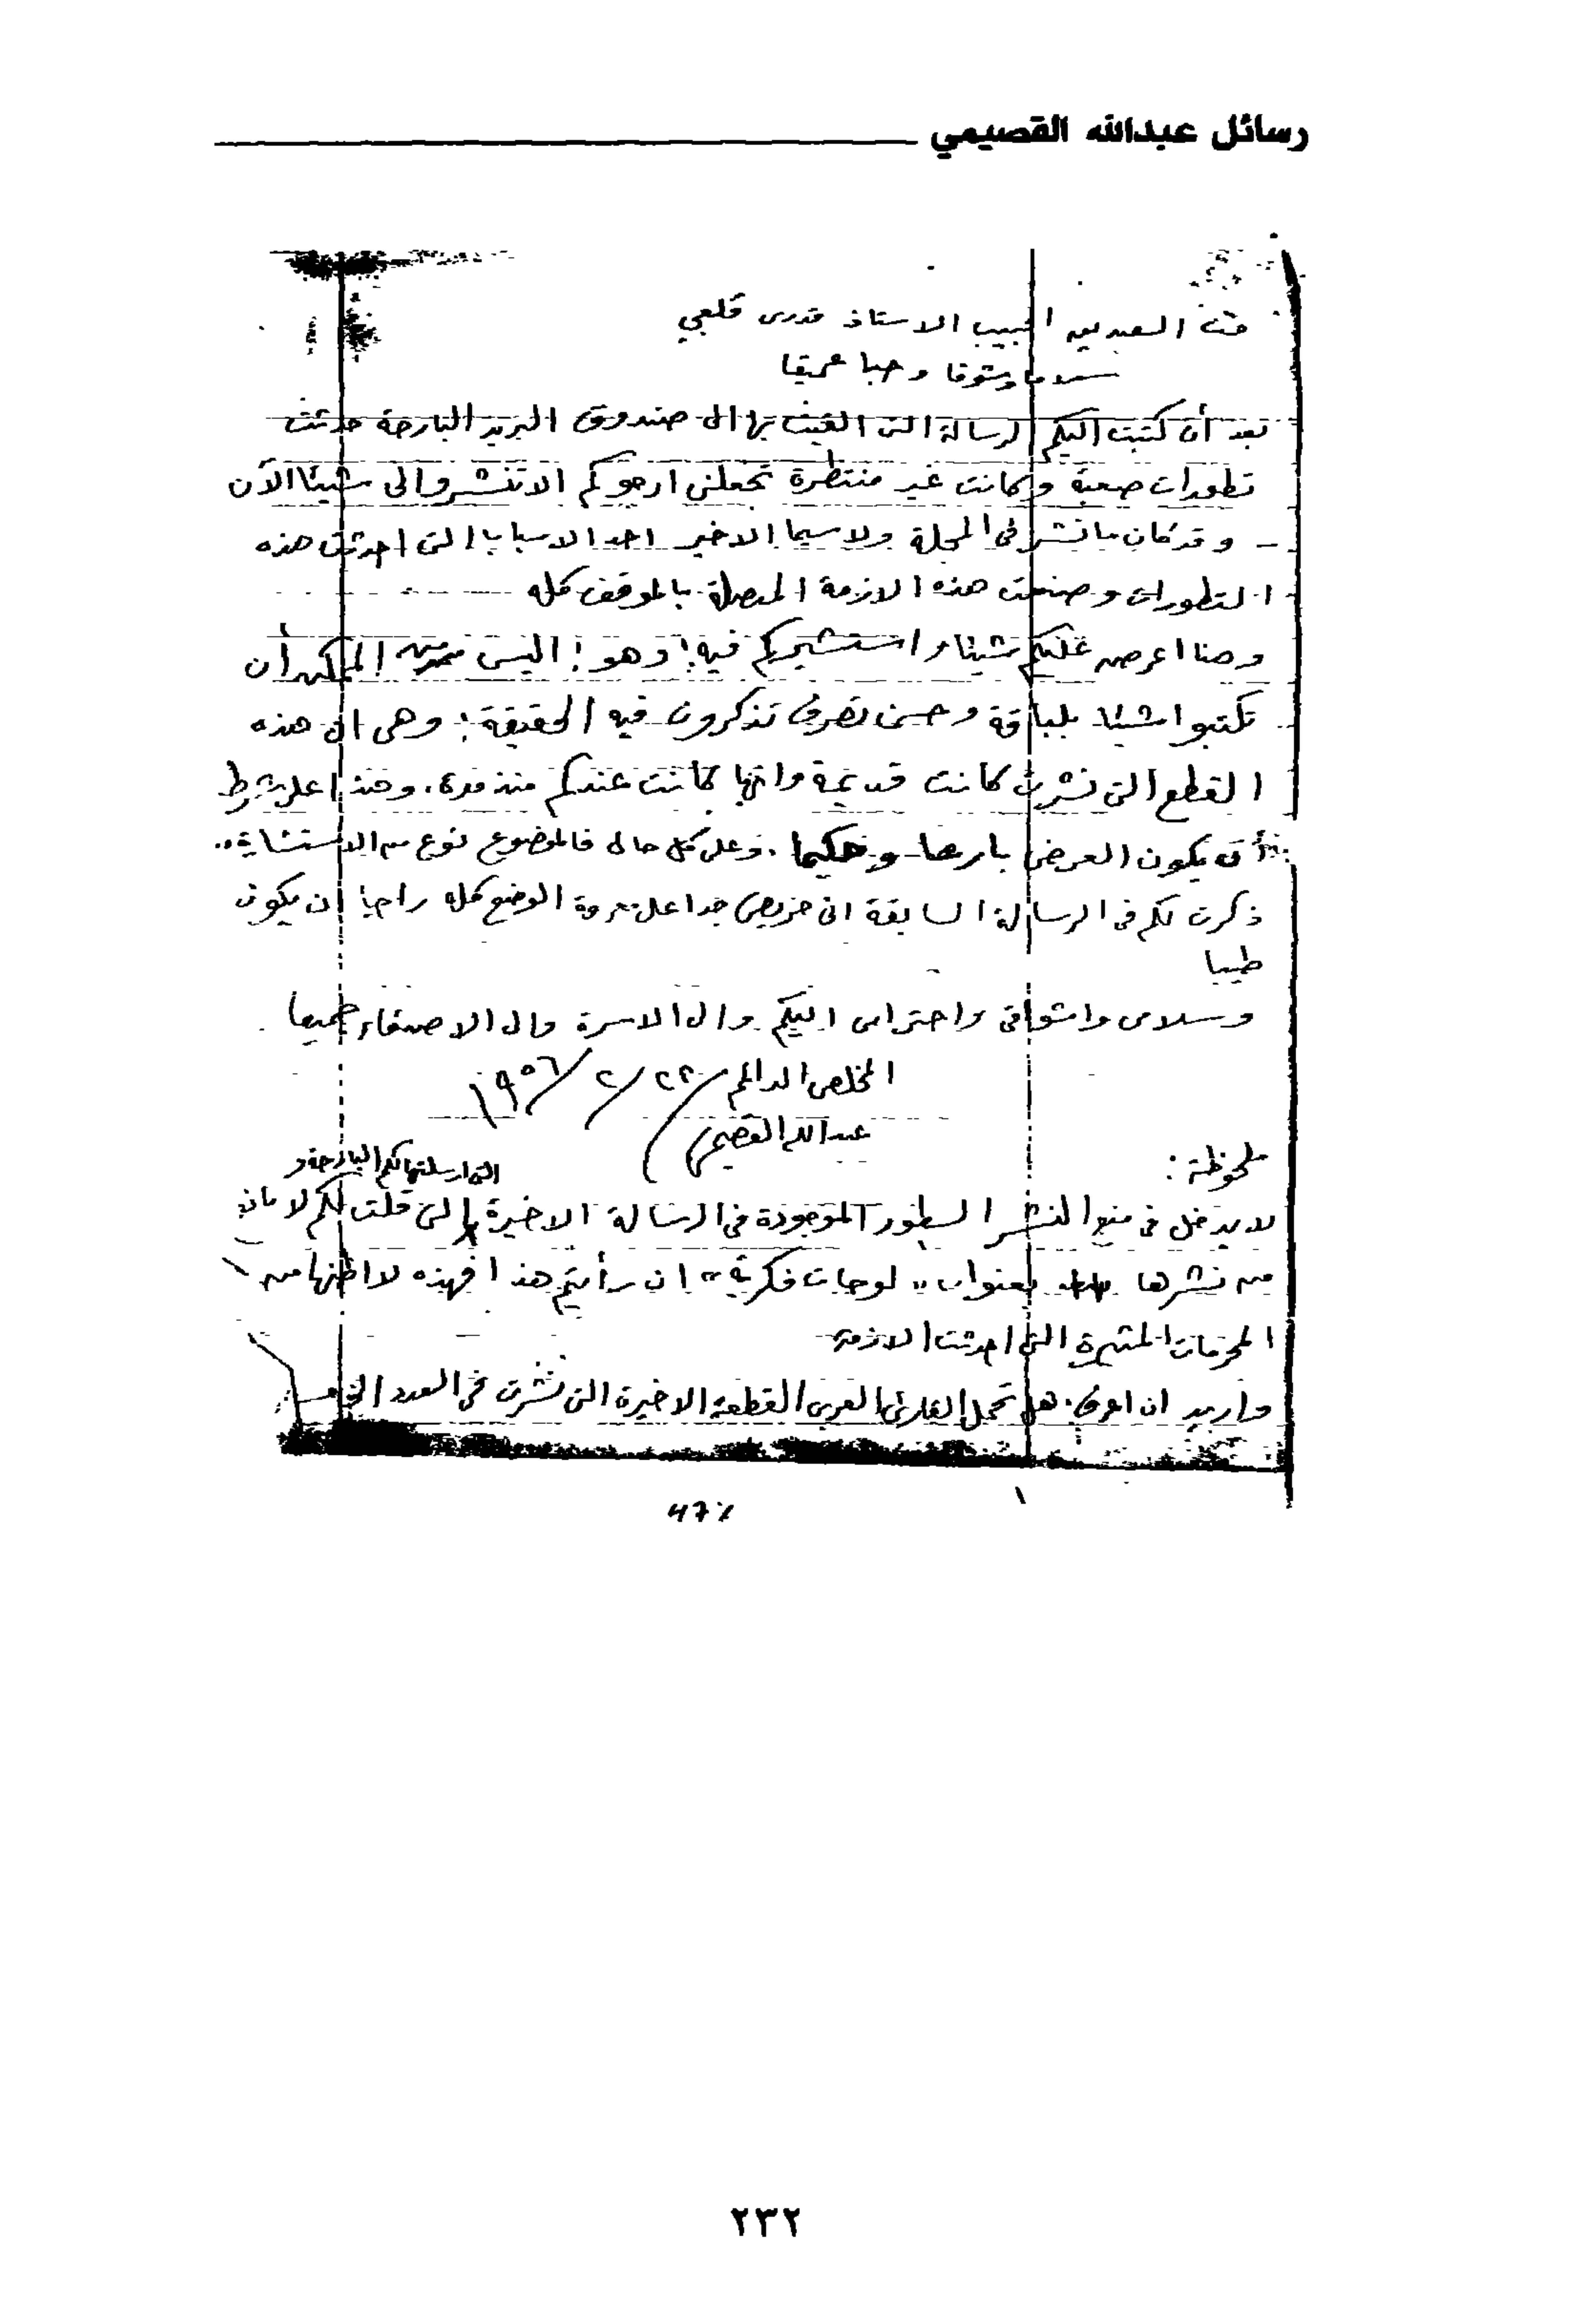 رسائل عبدالله القصيمي
الصديق الحبيب الاستاذ قدرى قلعجي
سلاما وشوقا وحبا عميقا
بعد أن كتبت اليكم الرسالة التى القيت بها الى صندوق البريد البارحة حدثت
تطورات صعبة وكانت غير منتظرة تجعلنى ارجوكم الا تنشروا لى شيئا الآن
- وقد كان ما نشر فى المجلة ولا سيما الاخير احد الاسباب التى احدثت هذه
التطورات وصنعت هذه الازمة المتصلة بالموقف كله
وهنا اعرض عليكم شيئا واستشيركم فيه؛ وهو؛ اليس من الممكن أن
تكتبوا شيئا بلباقة وحسن تصرف تذكرون فيه الحقيقة؛ وهى ان هذه
القطع التى نشرت كانت قديمة وانها كانت عندكم منذ مدة، وهذا على شرط
أن يكون العرض بارعا وحكيما. وعلى كل حال فالموضوع نوع من الاستشارة..
ذكرت لكم فى الرسالة السابقة انى حريص جدا على معرفة الوضع كله راجيا ان يكون
طيبا
وسلامى واشواقى واحترامى اليكم والى الاسرة والى الاصدقاء جميعا
المخلص الدائم ٢٢/٢/١٩٥٦
عبدالله القصيمى
ملحوظة:
التى ارسلتها لكم البارحة و
لا يدخل فى منع النشر السطور الموجودة فى الرسالة الاخيرة التى قلت لكم لا مانع
من نشرها بعنوان "لوحات فكرية" ان رأيتم هذا فهذه لا اظنها من
المحرمات المثيرة التى احدثت الازمة
واريد ان اعرف: هل تحمل القارئ العربى القطعة الاخيرة التى نشرت فى العدد
47%
١
٢٣٢